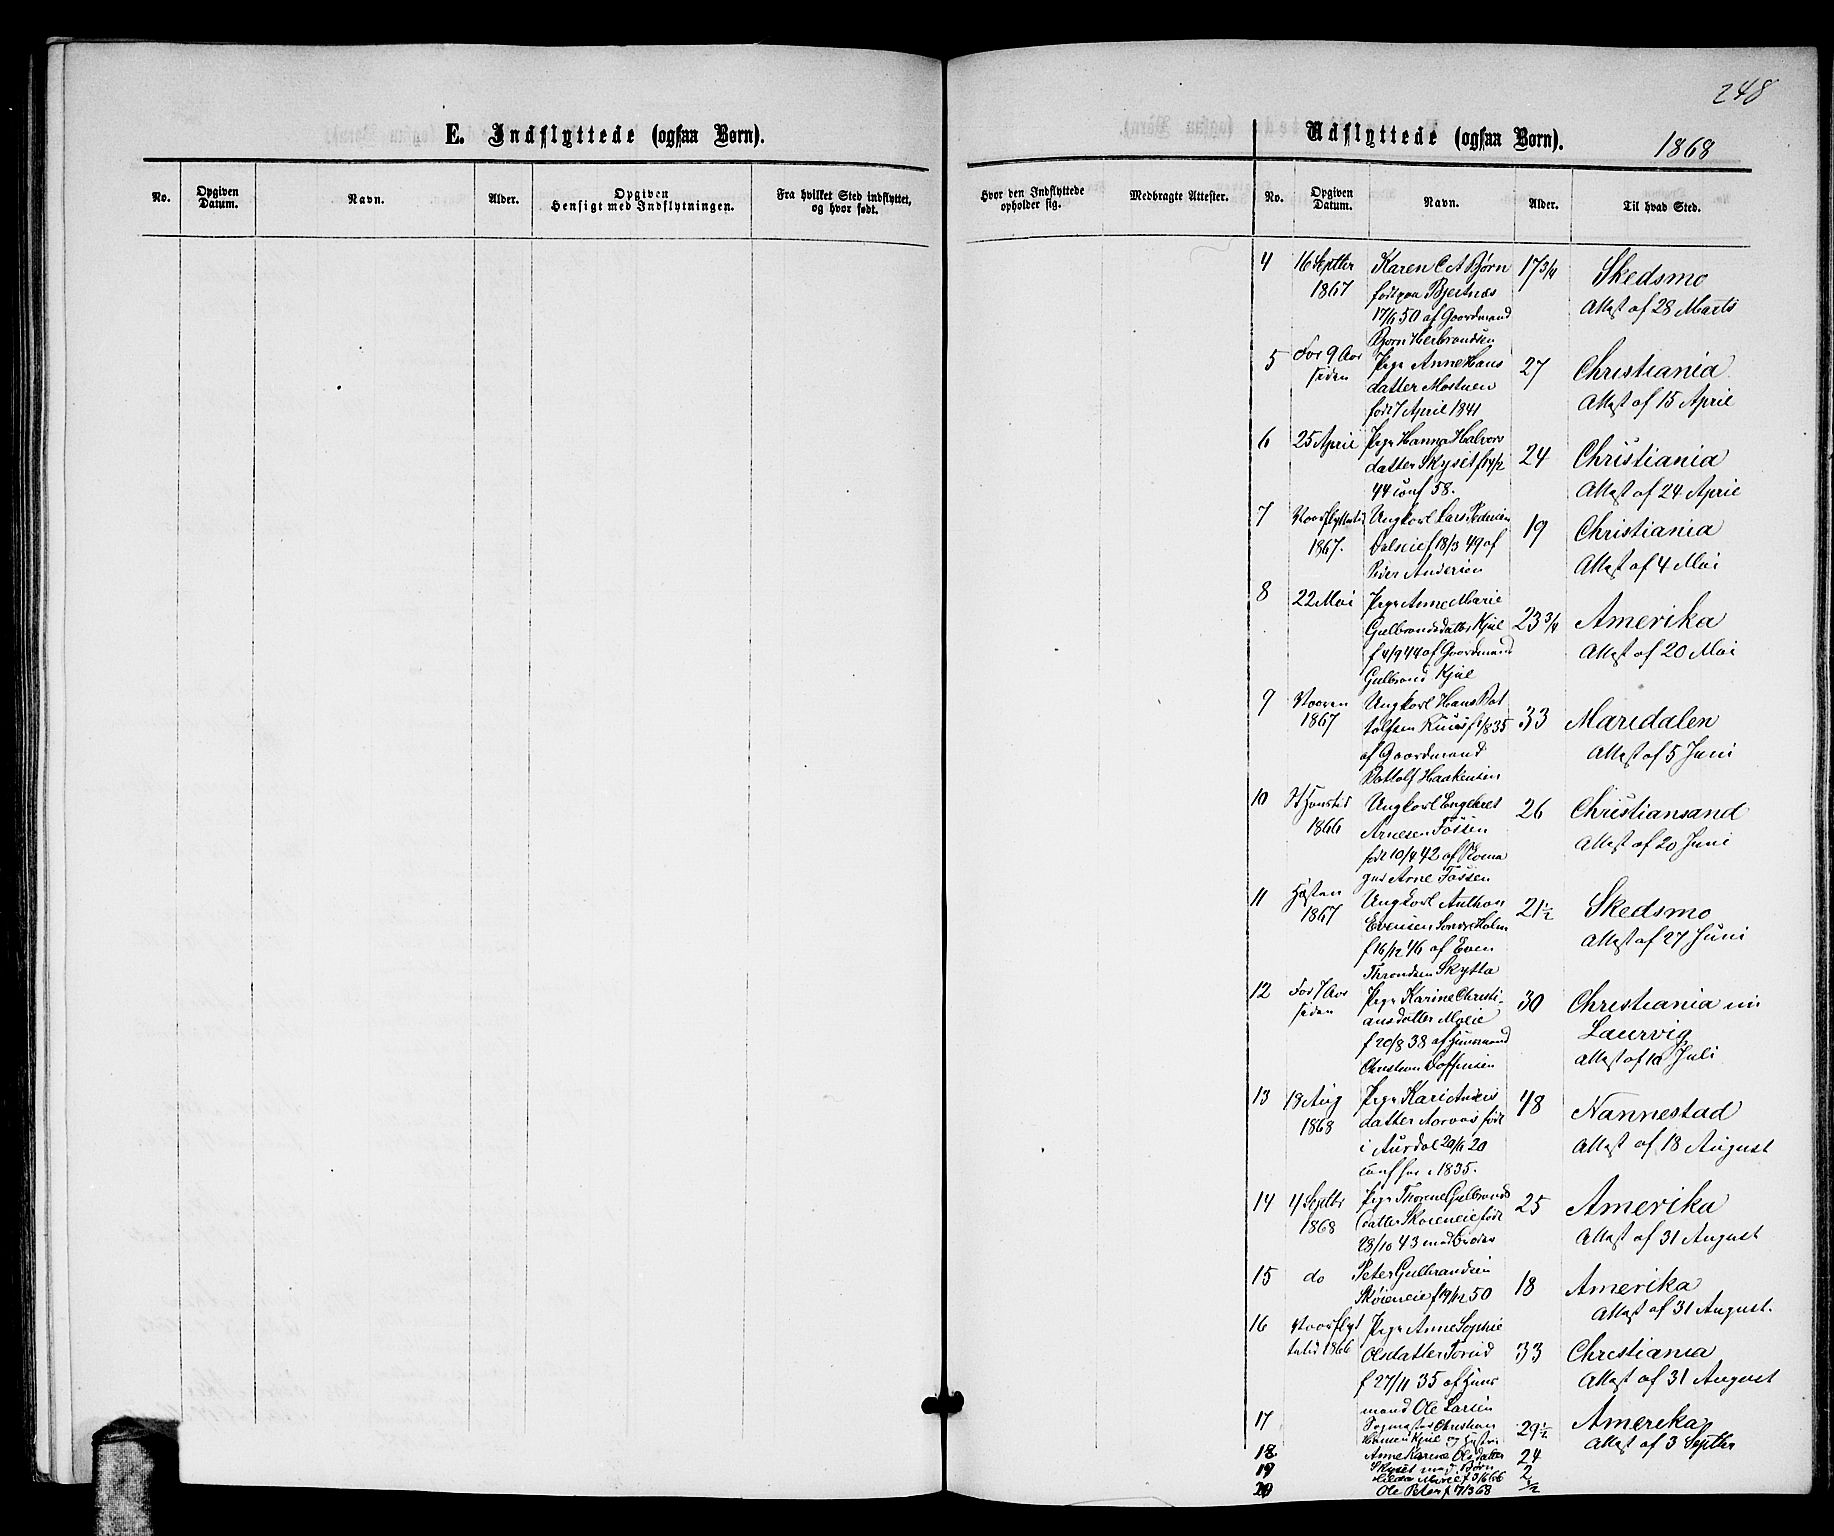 248
E. Indflyttede (ogsaa Børn).
No.
Opgiven Datum.
Navn.
Alder.
Opgiven Hensigt med Indflytningen.
Fra hvilket Sted indflyttet, og hvor født.
Hvor den Indflyttede opholder sig.
Medbragte Attester.
Udflyttede (ogsaa Børn).
1868
No.
Opgiven Datum.
Navn.
Alder.
Til hvad Sted.
4 16 Septbr Karen C A Bjørn 17 3/4 Skedsmo
1867 født paa Bjertnæs Attest af 28 Marts
17/6 50 af Gaardmand
Bjørn Herbrandsen
5 For 9 Aar Pige Anne Hans 27 Christiania
siden datter Mostuen Attest af 15 April
født 7 April 1841
6 25 April Pige Hanna Halvors 24 Christiania
datter Skyset f 14/2 Attest af 24 April
44 conf 58.
7 Ungkarl Lars Pedersen 19 Christiania
1867. f 18/3 49 af Attest af 4 Mai
Peder Andersen
8 22 Mai Pige Anne Marie 23 3/4 Amerika
Gulbrandsdatter Kjul Attest af 20 Mai
f 4/9 44 af Gaardmand
Gulbrand Kjul
9 Vaaren Ungkarl Hans Bot 33 Maridalen
1867 tolfsen 35 Attest af 5 Juni
af Gaardmand
Bottolf Haakensen
10 Ungkarl Engebret 26 Christiansand
1866 Arnesen Fossen Attest af 20 Juni
født 10/4 42 af
Arne Fossen
11 Høsten Ungkarl Anthon 21 1/2 Skedsmo
1867 Evensen Søndre Holm Attest af 27 Juni
f 16/12 46 af Even
Throndsen Skytta
12 For 7 Aar Pige Karine Christi- 30 Christiania nu
siden ansdatter Moeie Laurvig
f 20/8 38 af Huusmand Attest af 10 Juli
Christian
13 19 Aug Pige Kari Anders 48 Nannestad
1868 datter født Attest af 18 August
i Aurdal 29/6 20
conf her i 1835.
14 4 Septbr Pige Thorene Gulbrands 25 Amerika
1868 datter Skøieneie født Attest af 31 August
28/10 43 med Broder
15 do Peter Gulbrandsen 18 Amerika
Skøieneie f 19/12 50 Attest af 31 August.
16 Vaarflyt Pige Anne Sophie 33 Christiania
tetid 1866 Olsdatter f 27/11 35 af Huus Attest af 31 August
mand Ole Larsen
17 Christian 29 1/2 Amerika
Hansen Kjul og Hustru Attest af 3 Septbr
18 Anne Karine Olsdatter 24
19 Skyset med Børn 2
f 3/6 66
20 Ole Peter f 7/3 68 1/2